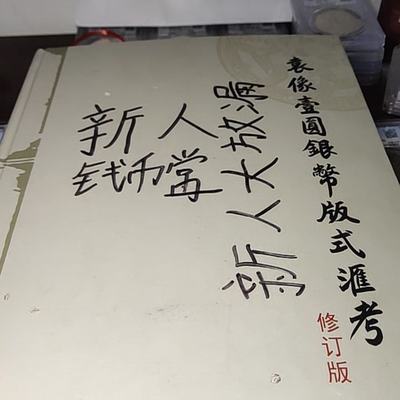 袁像壹圓銀幣版式滙考
修订版
新人大放漏
新人
钱币堂